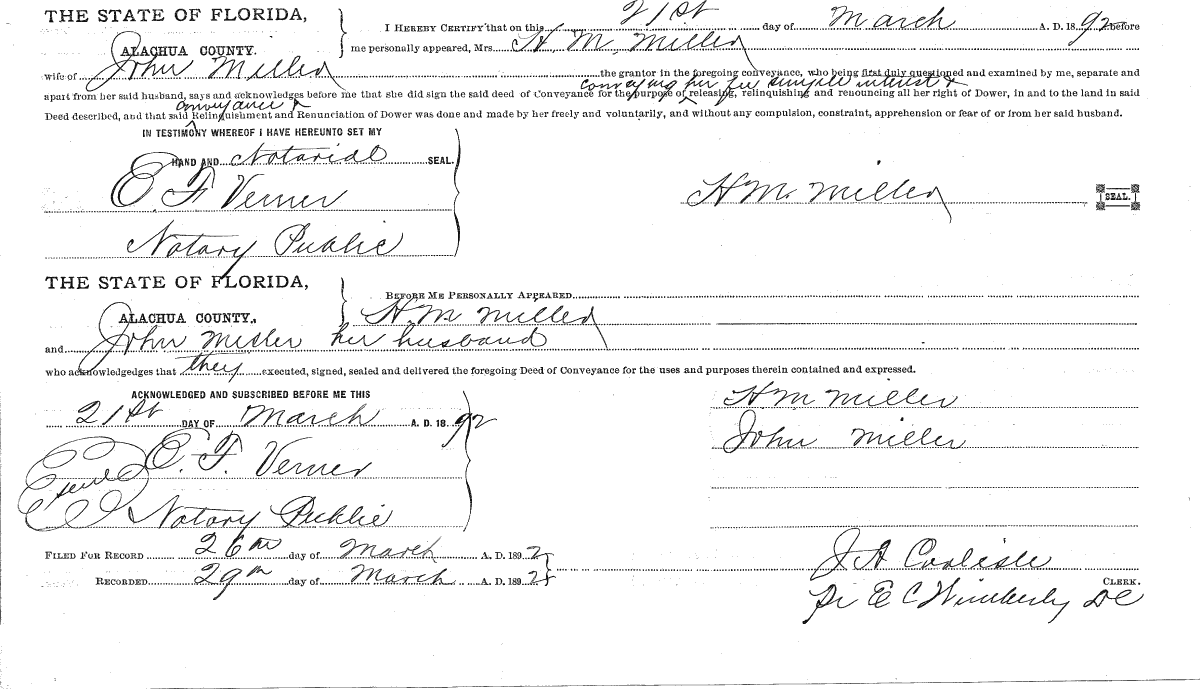 THE STATE OF FLORIDA,
ALACHUA COUNTY.
I HEREBY CERTIFY that on this 21st day of March A. D. 18 92 before
me personally appeared, Mrs. H. M. Miller
wife of John Miller the grantor in the foregoing conveyance, who being first duly questioned and examined by me, separate and
conveying her fee simple interest &
apart from her said husband, says and acknowledges before me that she did sign the said deed of Conveyance for the purpose of releasing, relinquishing and renouncing all her right of Dower, in and to the land in said
conveyance &
Deed described, and that said Relinquishment and Renunciation of Dower was done and made by her freely and voluntarily, and without any compulsion, constraint, apprehension or fear of or from her said husband.
IN TESTIMONY WHEREOF I HAVE HEREUNTO SET MY
HAND AND Notarial SEAL.
E. F. Verner
H M. Miller SEAL.
Notary Public
THE STATE OF FLORIDA,
ALACHUA COUNTY.
BEFORE ME PERSONALLY APPEARED
H. M. Miller
and John Miller her husband
who acknowledgedges that they executed, signed, sealed and delivered the foregoing Deed of Conveyance for the uses and purposes therein contained and expressed.
ACKNOWLEDGED AND SUBSCRIBED BEFORE ME THIS
21st DAY OF March A. D. 18 92
H M Miller
John Miller
E. F. Verner
Seal
Notary Public
FILED FOR RECORD 26th day of March A. D. 189 2
RECORDED 29th day of March A. D. 189 2
J A Carlisle
CLERK.
Pr E C Wimberly DC